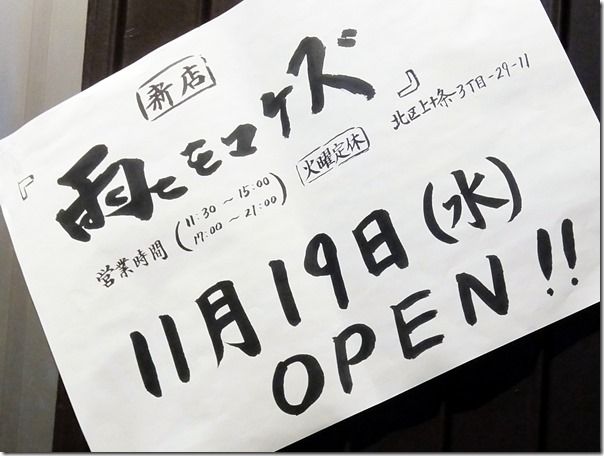 新店
『雨ニモマケズ』
北区上十条-3丁目-29-11
火曜定休
営業時間(11:30~15:00
17:00~21:00)
11月19日(水)
OPEN!!